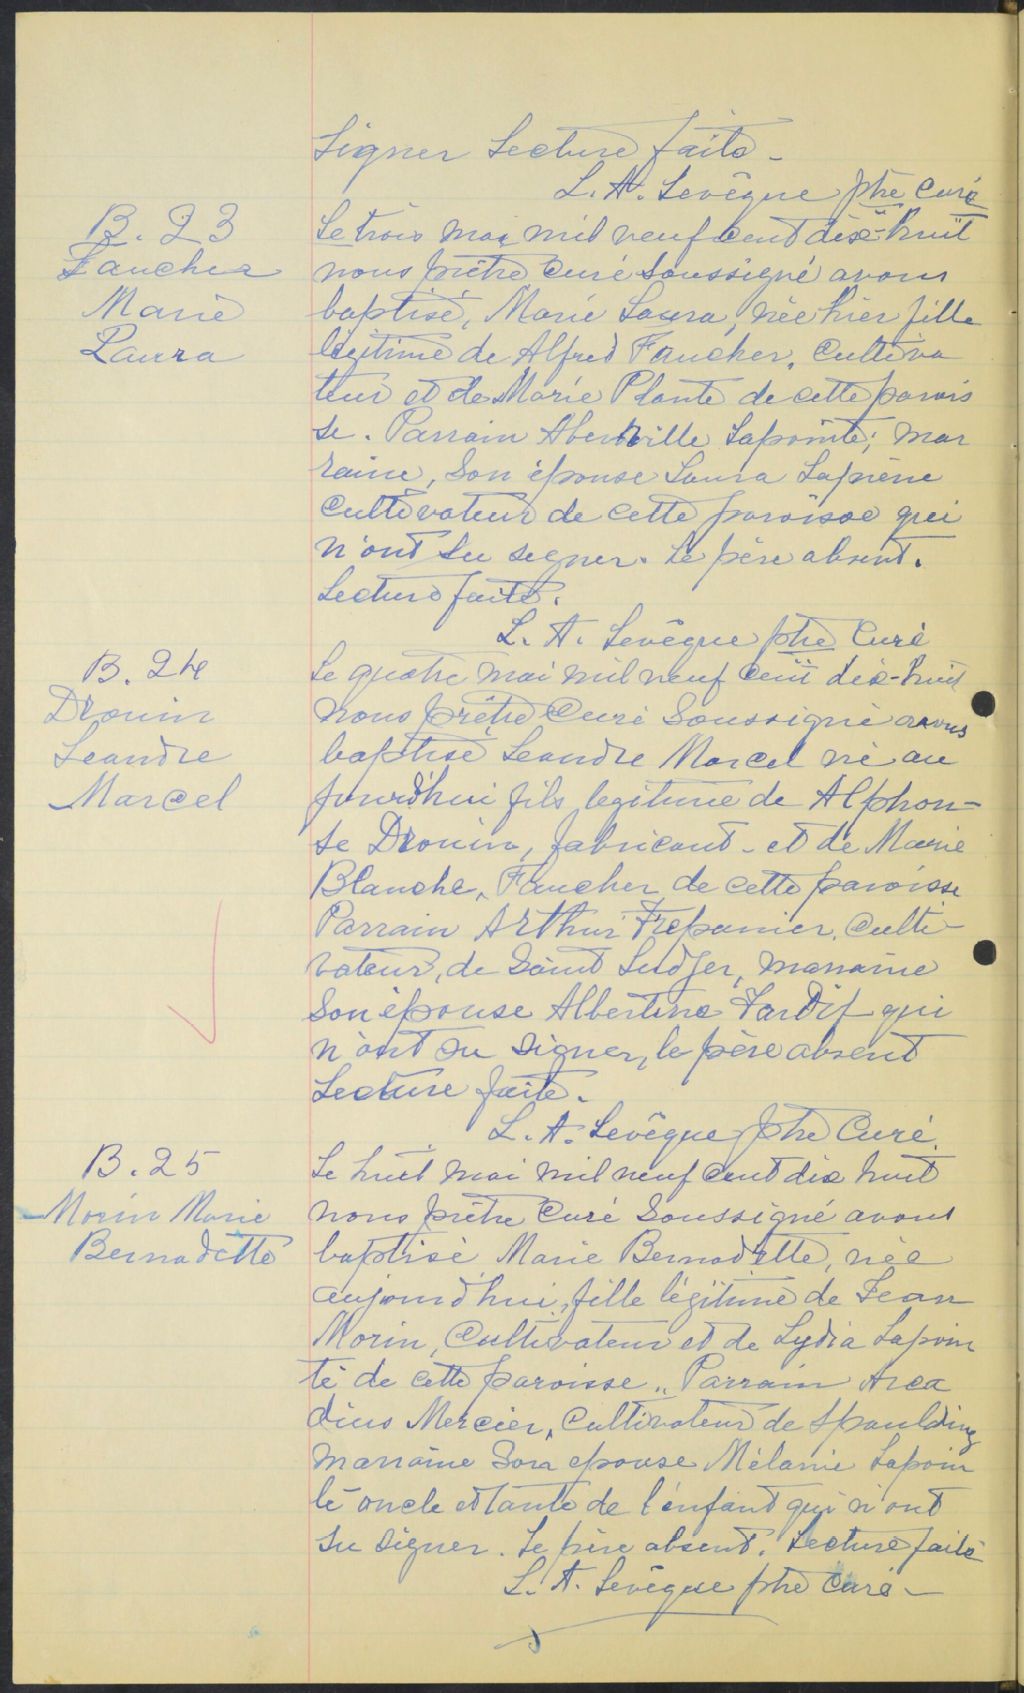 signer Lecture faite -
L. A. Levêque ptre curé
B. 23
Faucher
Marie
Laura
Le trois mai mil neuf cent dix-huit
nous prêtre curé soussigné avons
baptisé, Marie Laura, née hier fille
légitime de Alfred Faucher, cultiva
teur et de Marie Plante de cette parois
se. Parrain Lapointe; mar
raine, son épouse Laura Lapierre
cultivateur de cette paroisse qui
n'ont su signer. Le père absent.
Lecture faite.
L. A. Levêque ptre Curé
B. 24
Drouin
Leandre
Marcel
Le quatre mai mil neuf cent dix-huit
nous prêtre Curé soussigné avons
baptisé Leandre Marcel né au
jourd'hui fils legitime de Alphon-
se Drouin, fabricant - et de Marie
Blanche, Faucher de cette paroisse
Parrain Arthur Trepanier, culti-
vateur, de Saint Ludger, marraine
son épouse Albertine Tardif qui
n'ont su signer, le père absent
Lecture faite.
L. A. Levêque ptre Curé.
B. 25
Morin Marie
Bernadette
Le huit mai mil neuf cent dix huit
nous prêtre Curé soussigné avons
baptisé Marie Bernadette, née
aujourd'hui, fille légitime de Jean
Morin, Cultivateur et de Lydia Lapoin
te de cette paroisse. Parrain Arca
dius Mercier, Cultivateur de Spaulding
marraine son epouse Mélanie Lapoin
te oncle et tante de l'enfant qui n'ont
su signer. Le père absent. Lecture faite
L. A. Levêque ptre curé -